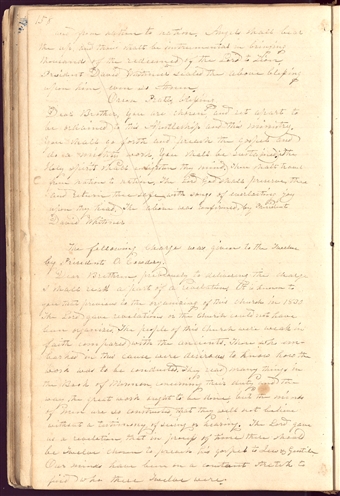 158
and from nation to nation, Angels shall bear
thee up, and thou shalt be instrumental in bringing
thousands of the redeemed of the Lord to Zion.
President David Whitmer sealed this above blessing
upon him, even so. Amen.
Orson Pratt's blessing
Dear Brother, you are chosen and set apart to
be ordained to this Apostleship and this ministry,
You shall go forth and preach the gospel and
do a mighty work, you shall be sustained, the
Holy Spirit shall enlighten thy mind, thou shalt travel
from nation to nation, the Lord God shall preserve thee
and return thee safe, with songs of everlasting joy
upon thy head. The above was confirmed by President
David Whitmer.
The following charge was given to the Twelve
by President O. Cowdery.
Dear Brethren previously to delivering this charge
I shall read a part of a Revelation. It is known to
you that previous to the organizing of this church in 1830
The Lord gave revelations or the church could not have
been organized. The people of this church were weak in
faith compared with the ancients. Those who em-
barked in this cause were desirous to know how the
work was to be conducted. They read many things in
the Book of Mormon, concerning their duty, and the
way the great work ought to be done, but the minds
of men are so constructed that they will not believe
without a testimony of seeing or hearing. The Lord gave
us a revelation that in process of time there should
be Twelve chosen to preach his gospel to Jew & Gentile
Our minds have been on a constant stretch to
find who these Twelve were.